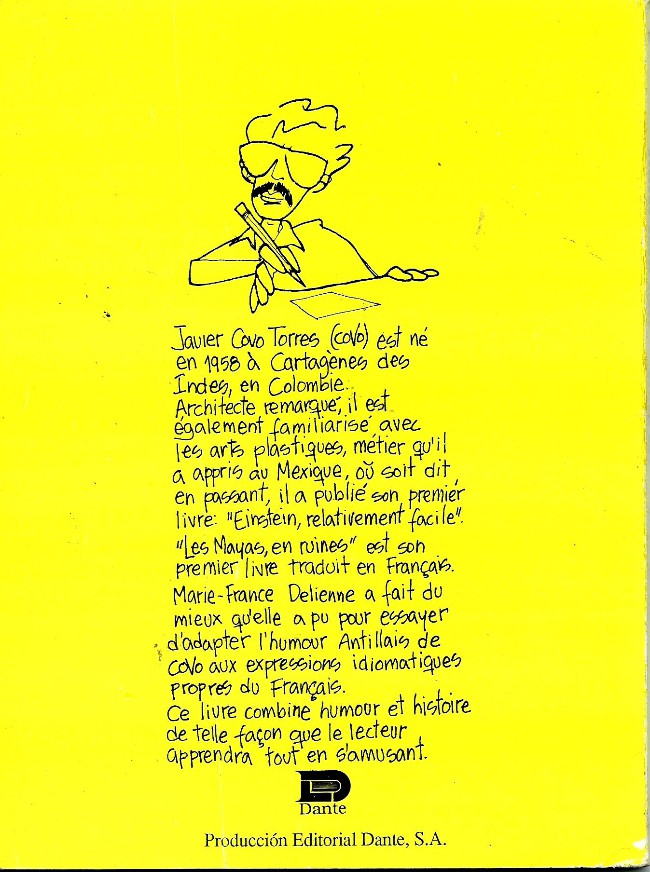 Javier Covo Torres (coVo) est né
en 1958 à Cartagènes des
Indes, en Colombie.
Architecte remarqué, il est
également familiarisé avec
les arts plastiques, métier qu'il
a appris au Mexique, où soit dit,
en passant, il a publié son premier
livre: "Einstein, relativement facile".
"Les Mayas, en ruines" est son
premier livre traduit en Français.
Marie-France Delienne a fait du
mieux qu'elle a pu pour essayer
d'adapter l'humour Antillais de
coVo aux expressions idiomatiques
propres du Français.
Ce livre combine humour et histoire
de telle façon que le lecteur
apprendra tout en s'amusant.
Dante
Producción Editorial Dante, S.A.